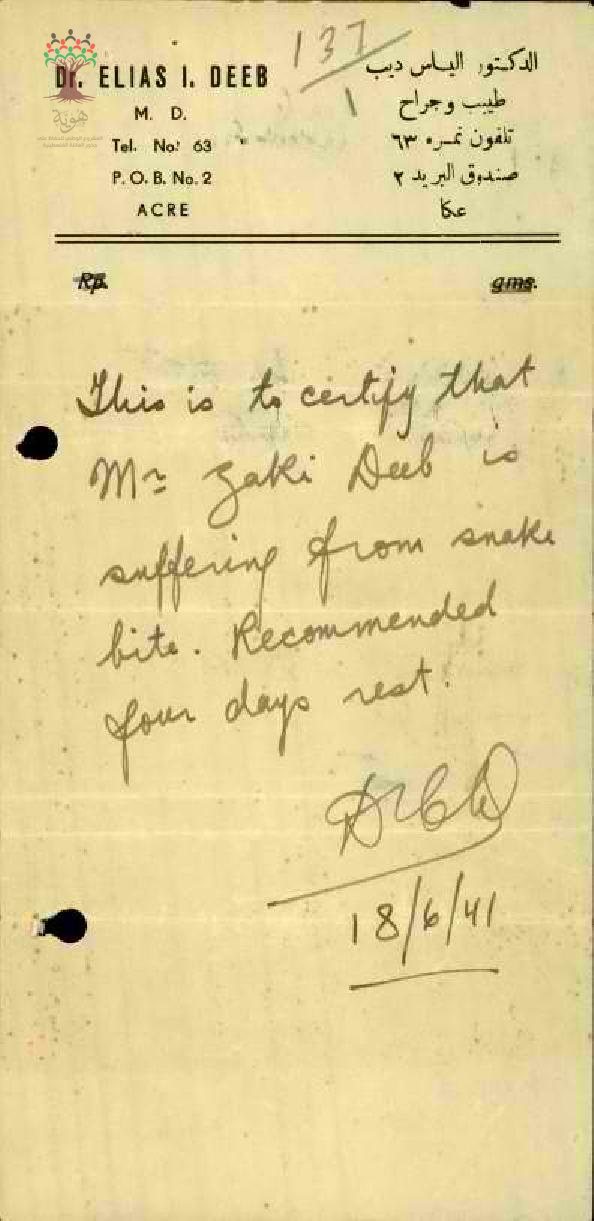 137
1
Dr. ELIAS I. DEEB
M. D.
Tel. No. 63
P. O. B. No. 2
ACRE
الدكتور الياس ديب
طبيب وجراح
تلفون نمره ٦٣
صندوق البريد ٢
عكا
هوية
Rp.
gms.
This is to certify that
Mr Zaki Deeb is
suffering from snake
bite. Recommended
four days rest.
18/6/41